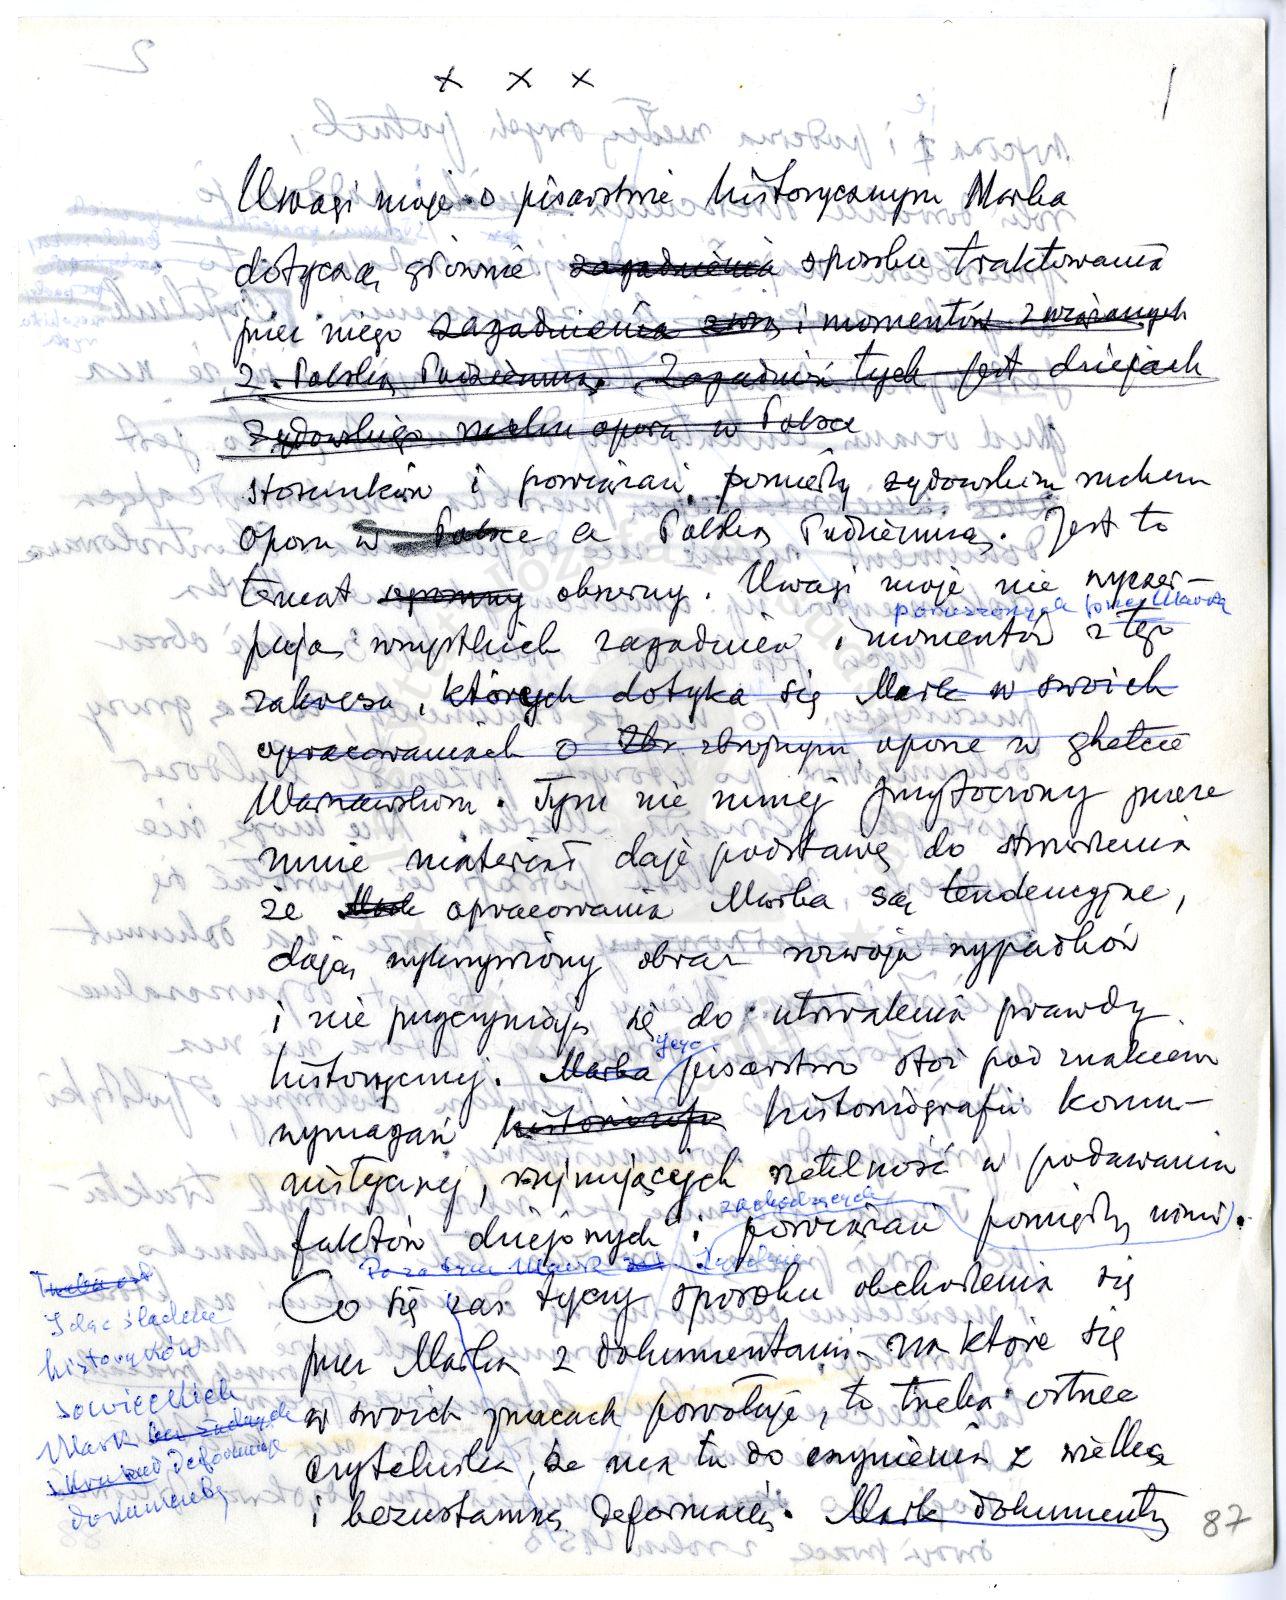 x x x
1
Uwagi moje o pisarstwie historycznym Marka
dotyczą głównie zagadnienia sposobu traktowania
przez niego zagadnienia zwią i momentów związanych
z Polską Podziemną. Zagadnień tych jest dziejach
żydowskiego ruchu oporu w Polsce
stosunków i powiązań pomiędzy żydowskim ruchem
oporu w Polsce a Polską Podziemną. Jest to
temat ogromny obszerny. Uwagi moje nie wyczer-
poruszonych przez Marka
pują wszystkich zagadnień i momentów z tego
zakresu, których dotyka się Mark w swoich
opracowaniach o Zbr zbrojnym oporze w ghetcie
Warszawskim. Tym nie mniej przytoczony przeze
mnie materiał daje podstawę do stwierdzenia
że Mark opracowania Marka są tendencyjne,
dają wykrzywiony obraz rozwoju wypadków
i nie przyczyniają się do utrwalenia prawdy
historycznej. Marka jego pisarstwo stoi pod znakiem
wymagań historiografii historiografii komu-
nistycznej, rzetelność w podawaniu
zachodzących
faktów dziejowych i powiązań pomiędzy nimi.
Poza tym Mark
Co się zaś tyczy sposobu obchodzenia się
przez Marka z dokumentami na które się
w swoich pracach powołuje, to trzeba ostrzec
czytelnika, że ma tu do czynienia z wielką
i bezustanną deformacją. Mark dokumenty
Trzeba
Idąc śladem
historyków
sowieckich
Mark bez żadnych
skrupułów deformuje
dokumenty
87